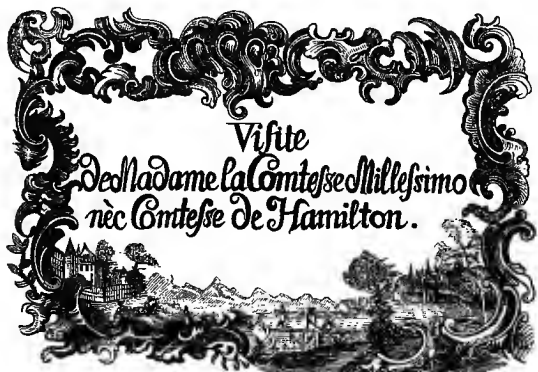 Viſite
De Madame la Comteſse Milleſsimo
nèc Comteſse de Hamilton.